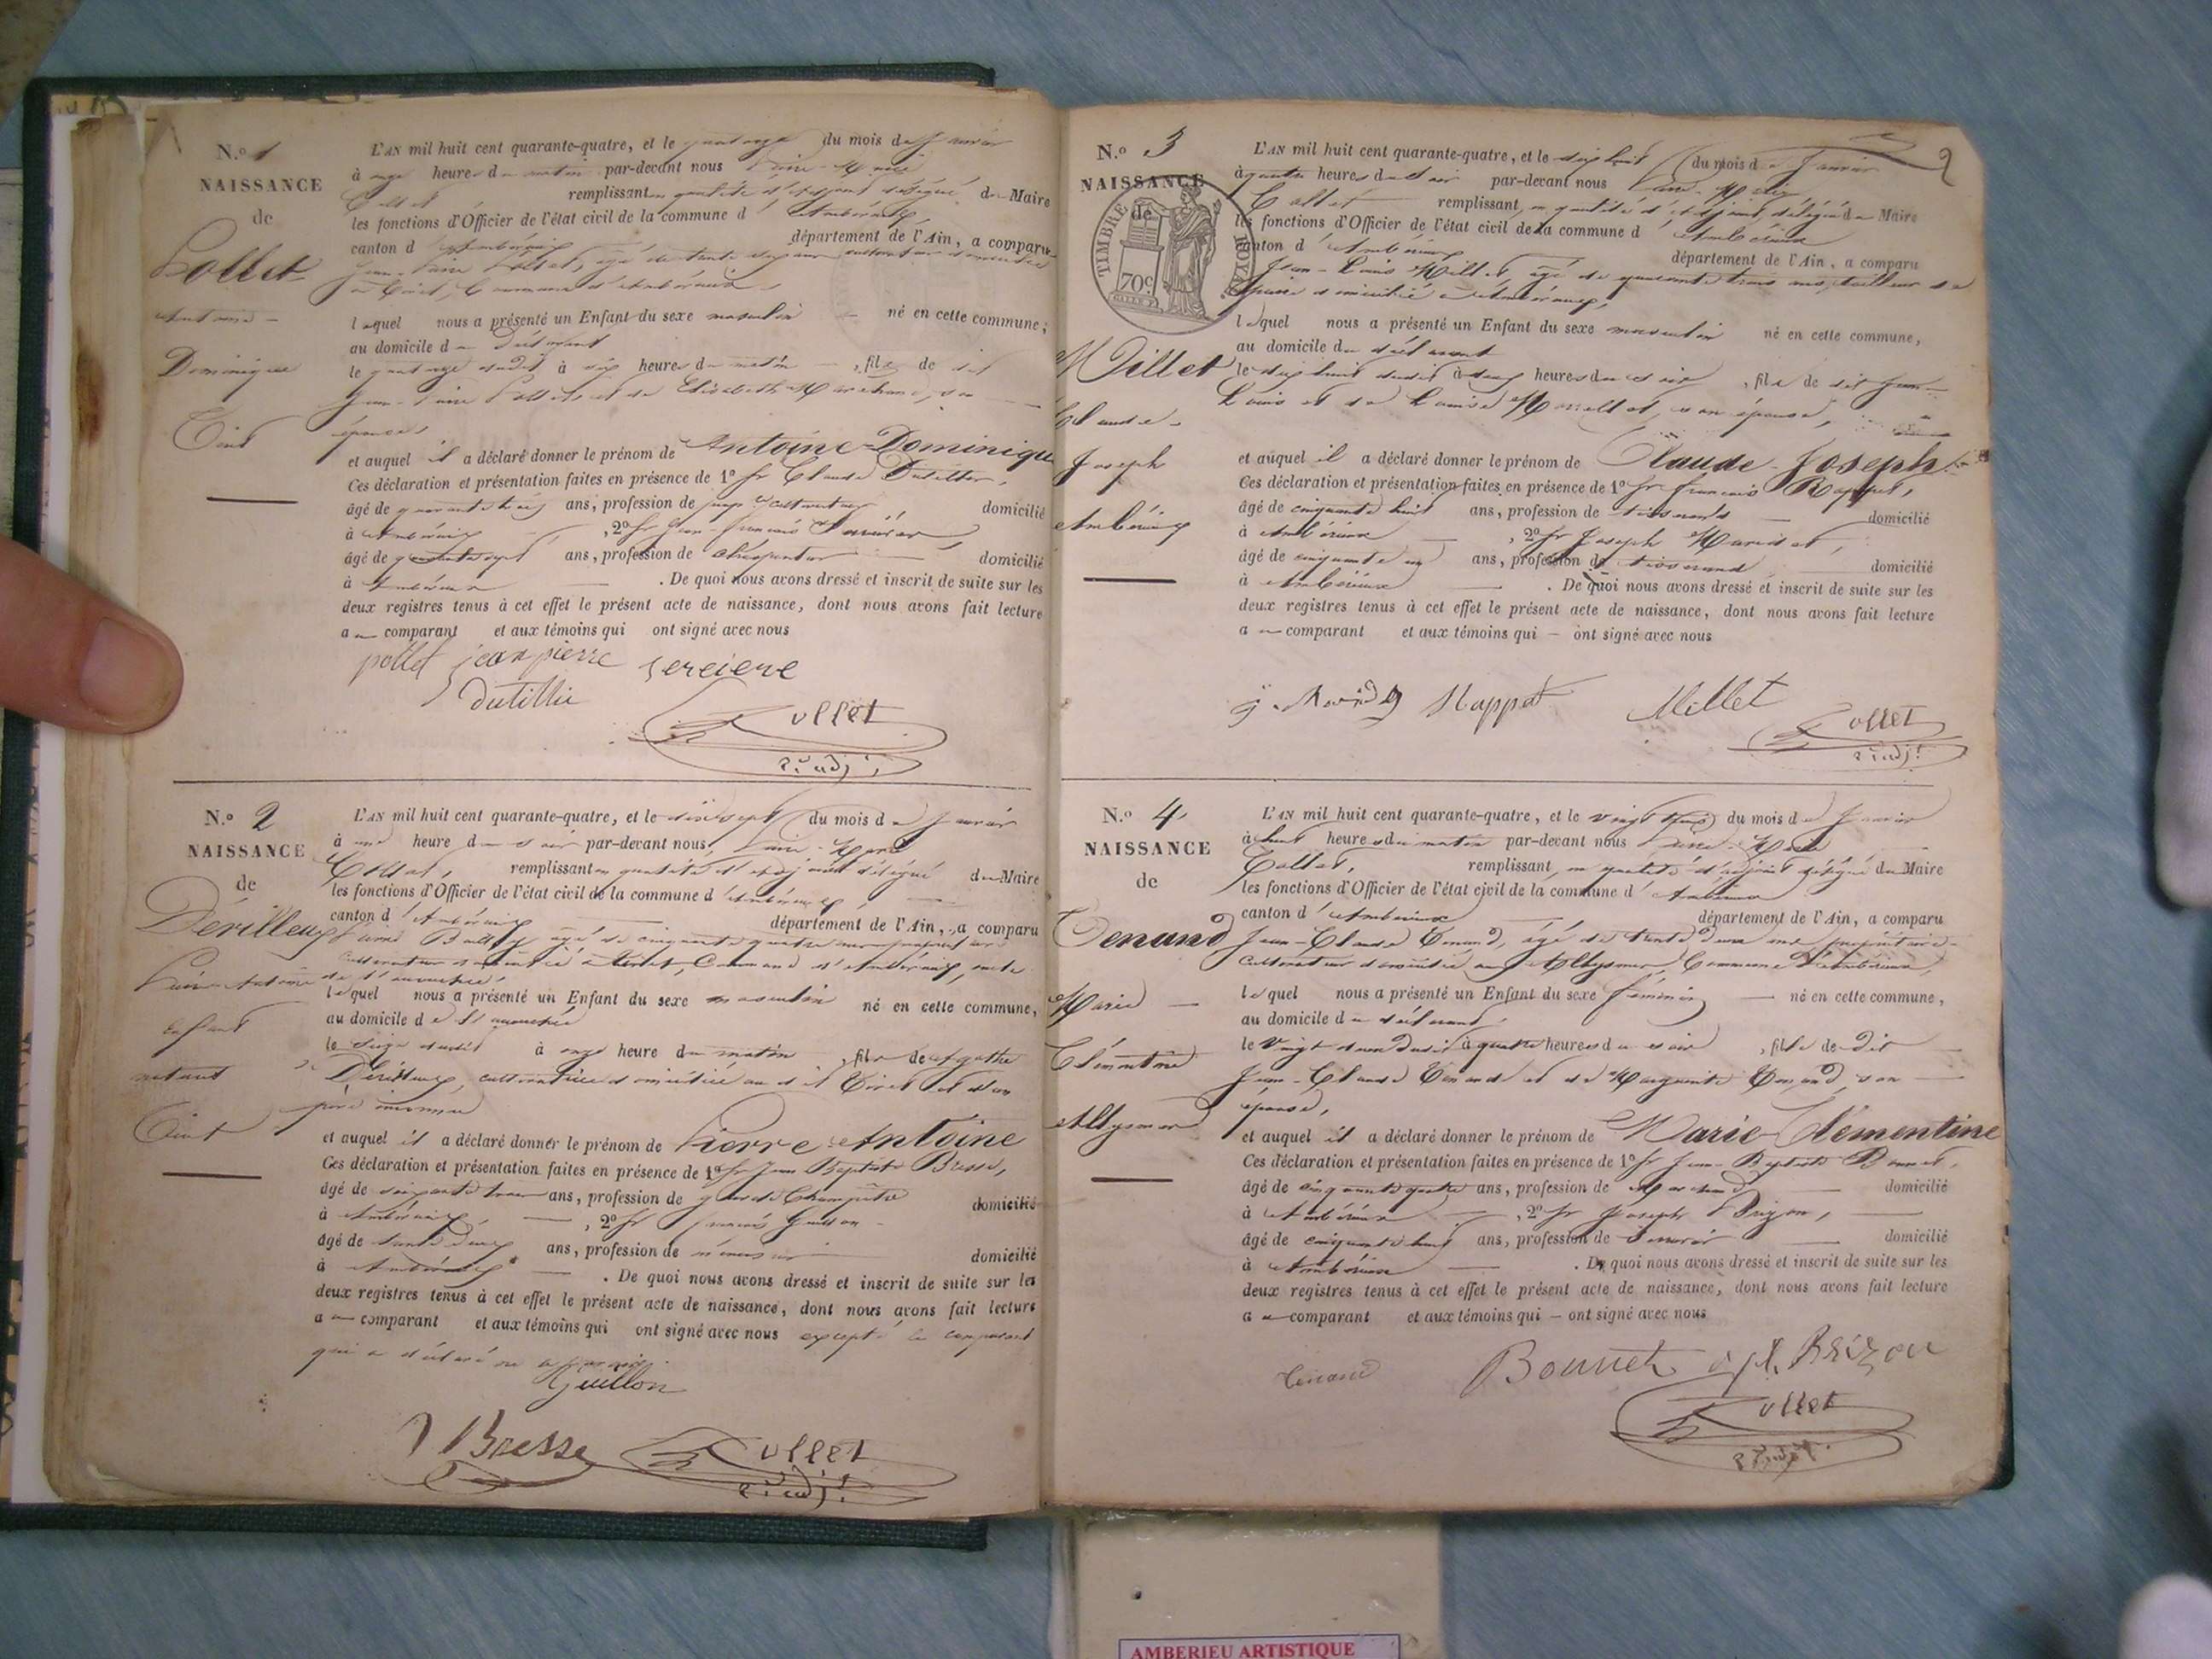 N.o 1
NAISSANCE
de
Pollet
Antoine
Dominique
Tiret
L'AN mil huit cent quarante-quatre, et le quatorze du mois de Janvier
à onze heures du matin par-devant nous Pierre-Marie
Collet remplissant en qualité d'adjoint délégué du Maire
les fonctions d'Officier de l'état civil de la commune d'Ambérieux,
canton d'Ambérieux département de l'Ain, a comparu
Jean-Pierre Pollet, âgé de trente ans cultivateur domicilié
à Tiret, Commune d'Ambérieux,
lequel nous a présenté un Enfant du sexe masculin né en cette commune,
au domicile du déclarant
le quatorze dudit, à six heures du matin, fils de dit
Jean-Pierre Pollet et de Elisabeth Marchand, son
épouse,
et auquel il a déclaré donner le prénom de Antoine-Dominique
Ces déclaration et présentation faites en présence de 1o Sr Claude Dutillier,
âgé de quarante ans, profession de cultivateur domicilié
à Ambérieux, 2o Sr Jean-françois
âgé de quarante sept ans, profession de charpentier domicilié
à Ambérieux. De quoi nous avons dressé et inscrit de suite sur les
deux registres tenus à cet effet le présent acte de naissance, dont nous avons fait lecture
au comparant et aux témoins qui ont signé avec nous
pollet jean pierre
dutillie
Collet
N.o 2
NAISSANCE
de
Dérilleux
Pierre Antoine
enfant
naturel
Tiret
L'AN mil huit cent quarante-quatre, et le dix sept du mois de Janvier
à une heure du soir par-devant nous Pierre-Marie
Collet, remplissant en qualité d'adjoint délégué du Maire
les fonctions d'Officier de l'état civil de la commune d'Ambérieux,
canton d'Ambérieux département de l'Ain, a comparu
Pierre Bailly âgé de cinquante quatre ans propriétaire
cultivateur domicilié à Tiret, Commune d'Ambérieux,
de l'accouchée,
lequel nous a présenté un Enfant du sexe masculin né en cette commune,
au domicile de l'accouchée
le seize dudit à onze heure du matin, fils de Agathe
Dérilleux, cultivatrice domiciliée au dit Tiret et d'un
père inconnu
et auquel il a déclaré donner le prénom de Pierre-Antoine
Ces déclaration et présentation faites en présence de 1o Sr Jean Baptiste Bresse,
âgé de soixante trois ans, profession de garde Champêtre domicilié
à Ambérieux, 2o Sr françois Guillon
âgé de trente deux ans, profession de menuisier domicilié
à Ambérieux. De quoi nous avons dressé et inscrit de suite sur les
deux registres tenus à cet effet le présent acte de naissance, dont nous avons fait lecture
au comparant et aux témoins qui ont signé avec nous excepté le comparant
qui a déclaré ne le savoir.
Guillon
Bresse
Collet
2
N.o 3
NAISSANCE
de
TIMBRE ROYAL
70c
Millet
Claude
Joseph
Ambérieux
L'AN mil huit cent quarante-quatre, et le dix huit du mois de Janvier
à quatre heures du soir par-devant nous Pierre-Marie
Collet remplissant, en qualité d'adjoint, délégué du Maire
les fonctions d'Officier de l'état civil de la commune d'Ambérieux
canton d'Ambérieux département de l'Ain, a comparu
Jean-Louis Millet, âgé de quarante trois ans, tailleur de
pierre domicilié à Ambérieux,
lequel nous a présenté un Enfant du sexe masculin né en cette commune,
au domicile du déclarant
le dix huit dudit à deux heures du soir, fils de dit Jean-
Louis et de Louise Morellet, son épouse,
et auquel il a déclaré donner le prénom de Claude-Joseph
Ces déclaration et présentation faites en présence de 1o Sr françois Rappet,
âgé de cinquante huit ans, profession de tisserand domicilié
à Ambérieux, 2o Sr Joseph
âgé de cinquante un ans, profession de tisserand domicilié
à Ambérieux. De quoi nous avons dressé et inscrit de suite sur les
deux registres tenus à cet effet le présent acte de naissance, dont nous avons fait lecture
au comparant et aux témoins qui – ont signé avec nous
Rappet Millet
Collet
N.o 4
NAISSANCE
de
Tenand
Marie
Clémentine
Allymard
L'AN mil huit cent quarante-quatre, et le vingt trois du mois de Janvier
à huit heures du matin par-devant nous Pierre-Marie
Collet, remplissant, en qualité d'adjoint délégué du Maire
les fonctions d'Officier de l'état civil de la commune d'Ambérieux
canton d'Ambérieux département de l'Ain, a comparu
Jean-Claude Tenand, âgé de trente deux ans propriétaire-
cultivateur domicilié aux Allymard, Commune d'Ambérieux,
lequel nous a présenté un Enfant du sexe féminin né en cette commune,
au domicile du déclarant
le vingt deux dudit à quatre heures du soir, fille de dit
Jean-Claude Tenand et de Marguerite Tenand, son
épouse,
et auquel il a déclaré donner le prénom de Marie-Clémentine
Ces déclaration et présentation faites en présence de 1o Sr Jean-Baptiste Bonnet,
âgé de cinquante quatre ans, profession de Marchand domicilié
à Ambérieux, 2o Sr Joseph Brizon,
âgé de cinquante huit ans, profession de domicilié
à Ambérieux. De quoi nous avons dressé et inscrit de suite sur les
deux registres tenus à cet effet le présent acte de naissance, dont nous avons fait lecture
au comparant et aux témoins qui – ont signé avec nous
Tenand Bonnet Brizon
Collet
AMBERIEU ARTISTIQUE